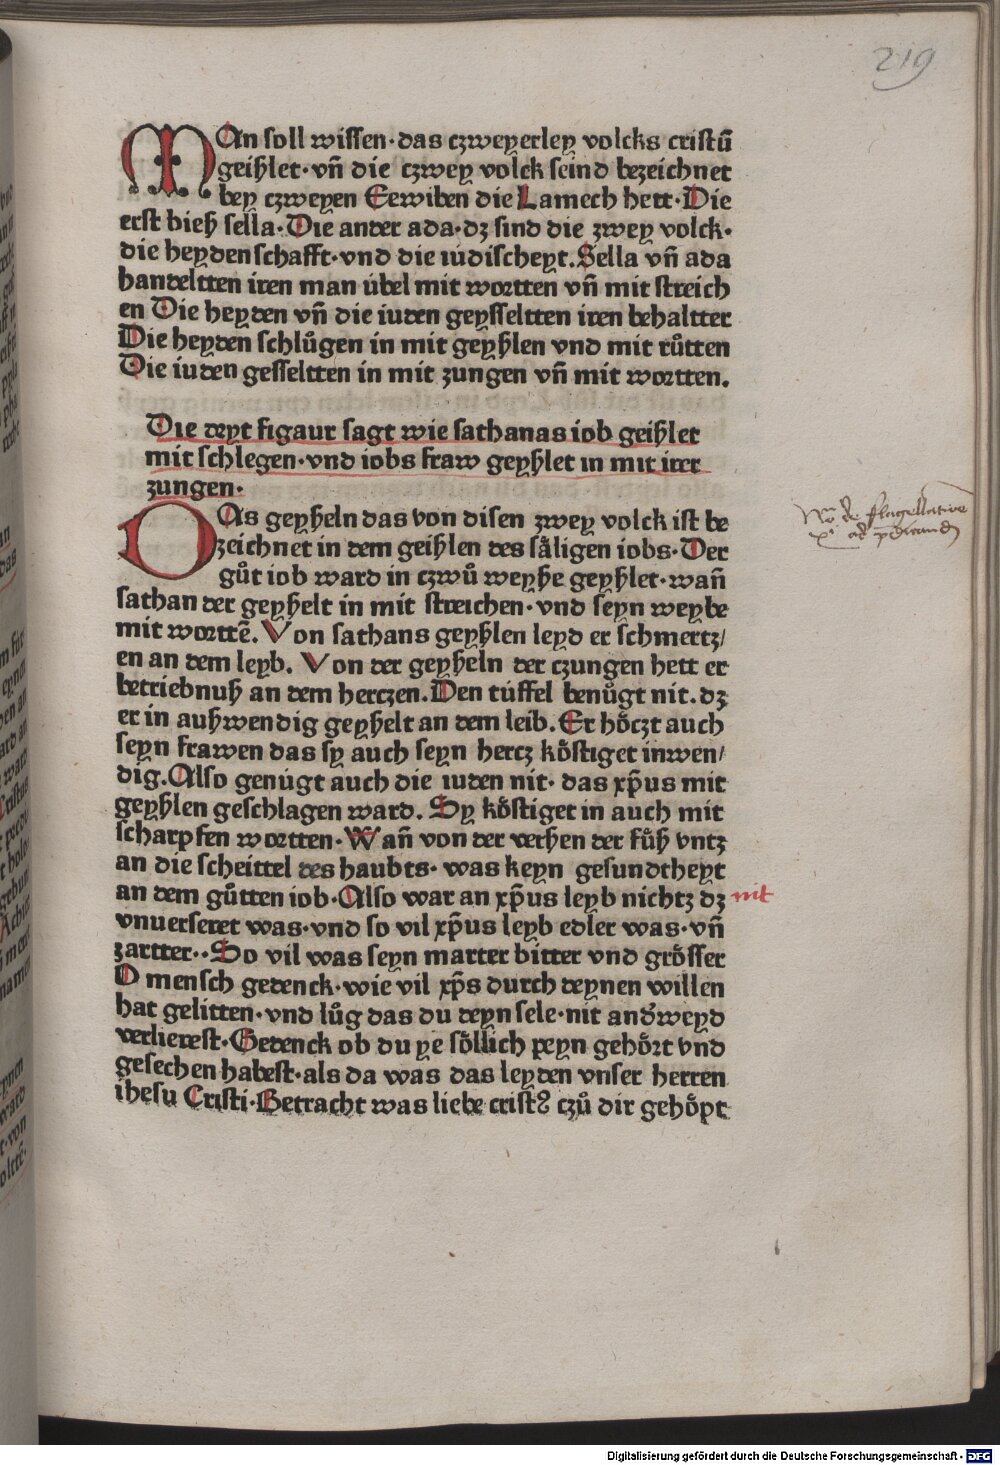 219
MAn soll wissen·das czweyerley volcks cristū
geiſzlet·vn̄ die czwey volck seind bezeichnet
bey czweyen Eewiben die Lamech hett·Die
erst hieß sella·Die ander ada·dz sind die zwey volck·
die heydenschafft·vnd die iudischeyt.Sella vn̄ ada
handeltten iren man übel mit wortten vn̄ mit streich
en Die heyden vn̄ die iuden geysseltten iren behaltter
Die heyden schlůgen in mit geyßlen vnd mit růtten
Die iuden gesseltten in mit zungen vn̄ mit wortten.
Die dryt figaur sagt wie sathanas iob geißlet
mit schlegen·vnd iobs fraw geyßlet in mit irer
zungen·
DAs geyßeln das von disen zwey volck ist be
zeichnet in dem geißlen des såligen iobs·Der
gůt iob ward in czwů weyße geyßlet·wan̄
sathan der geyßelt in mit streichen·vnd seyn weybe
mit worttē. Von sathans geyßlen leyd er schmertz/
en an dem leyb. Von der geyßeln der czungen hett er
betriebnuß an dem herczen.Den tüffel benůgt nit.dz
er in außwendig geyßelt an dem leib.Er hőczt auch
seyn frawen das sy auch seyn hercz kőstiget inwen/
dig.Also genügt auch die iuden nit·das xp̄us mit
geyßlen geschlagen ward. Sy kőstiget in auch mit
scharpfen wortten·Wan̄ von der verßen der fůß vntz
an die scheittel des haubts·was keyn gesundtheyt
an dem gůtten iob·Also war an xp̄us leyb nichtz dz nit
vnuerseret was·vnd so vil xp̄us leyb edler was·vn̄
zartter··So vil was seyn marter bitter vnd grősser
O mensch gedenck·wie vil xp̄s durch deynen willen
hat gelitten·vnd lůg das du deyn sele·nit andweyd
verlierest·Gedenck ob du ye sőllich peyn gehőrt vnd
gesechen habest·als da was das leyden vnser herren
ihesu Cristi·Betracht was liebe cristꝰ czů dir gehőpt
de flagellatione
Digitalisierung gefördert durch die Deutsche Forschungsgemeinschaft - DFG